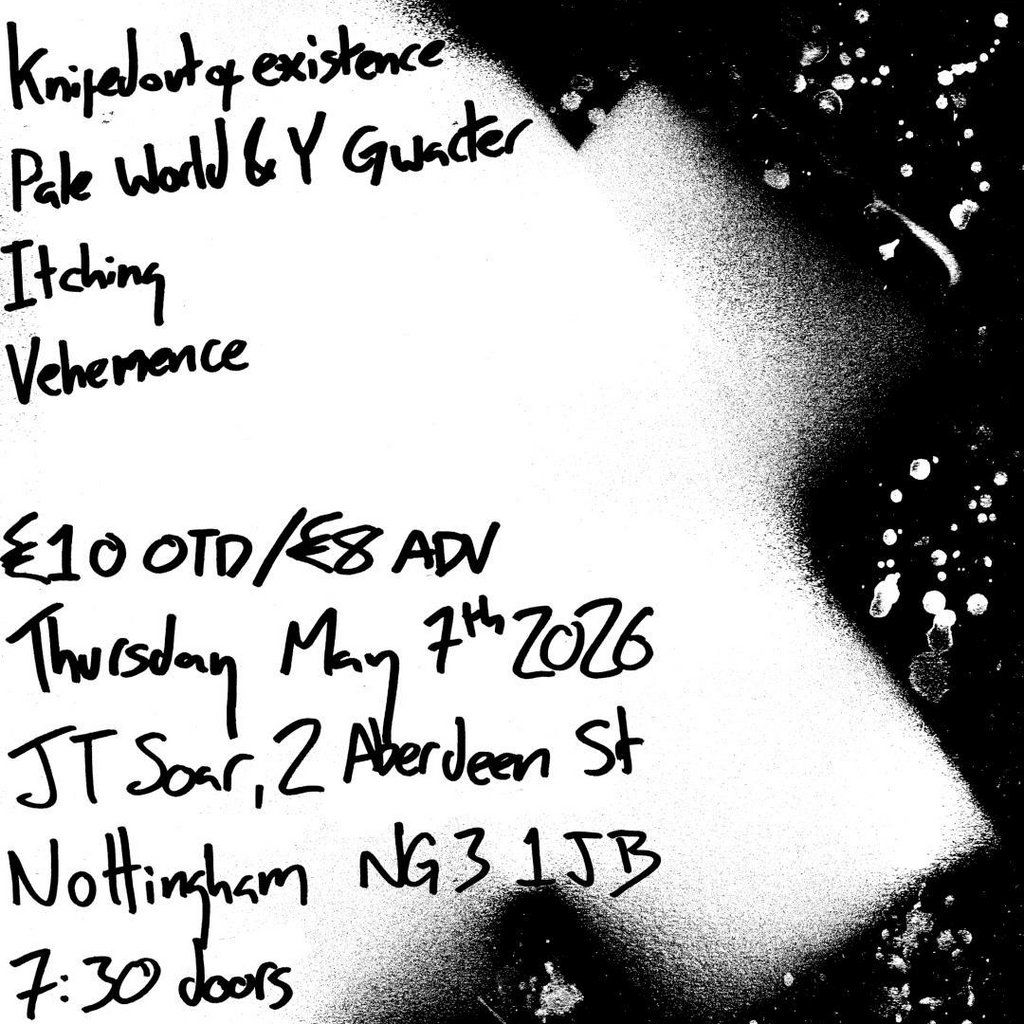 Knifedoutof existence
Pale World & Y Gwacter
Itching
Vehemence
£10 OTD/£8 ADV
Thursday May 7th 2026
JT Soar, 2 Aberdeen St
Nottingham NG3 1JB
7:30 doors